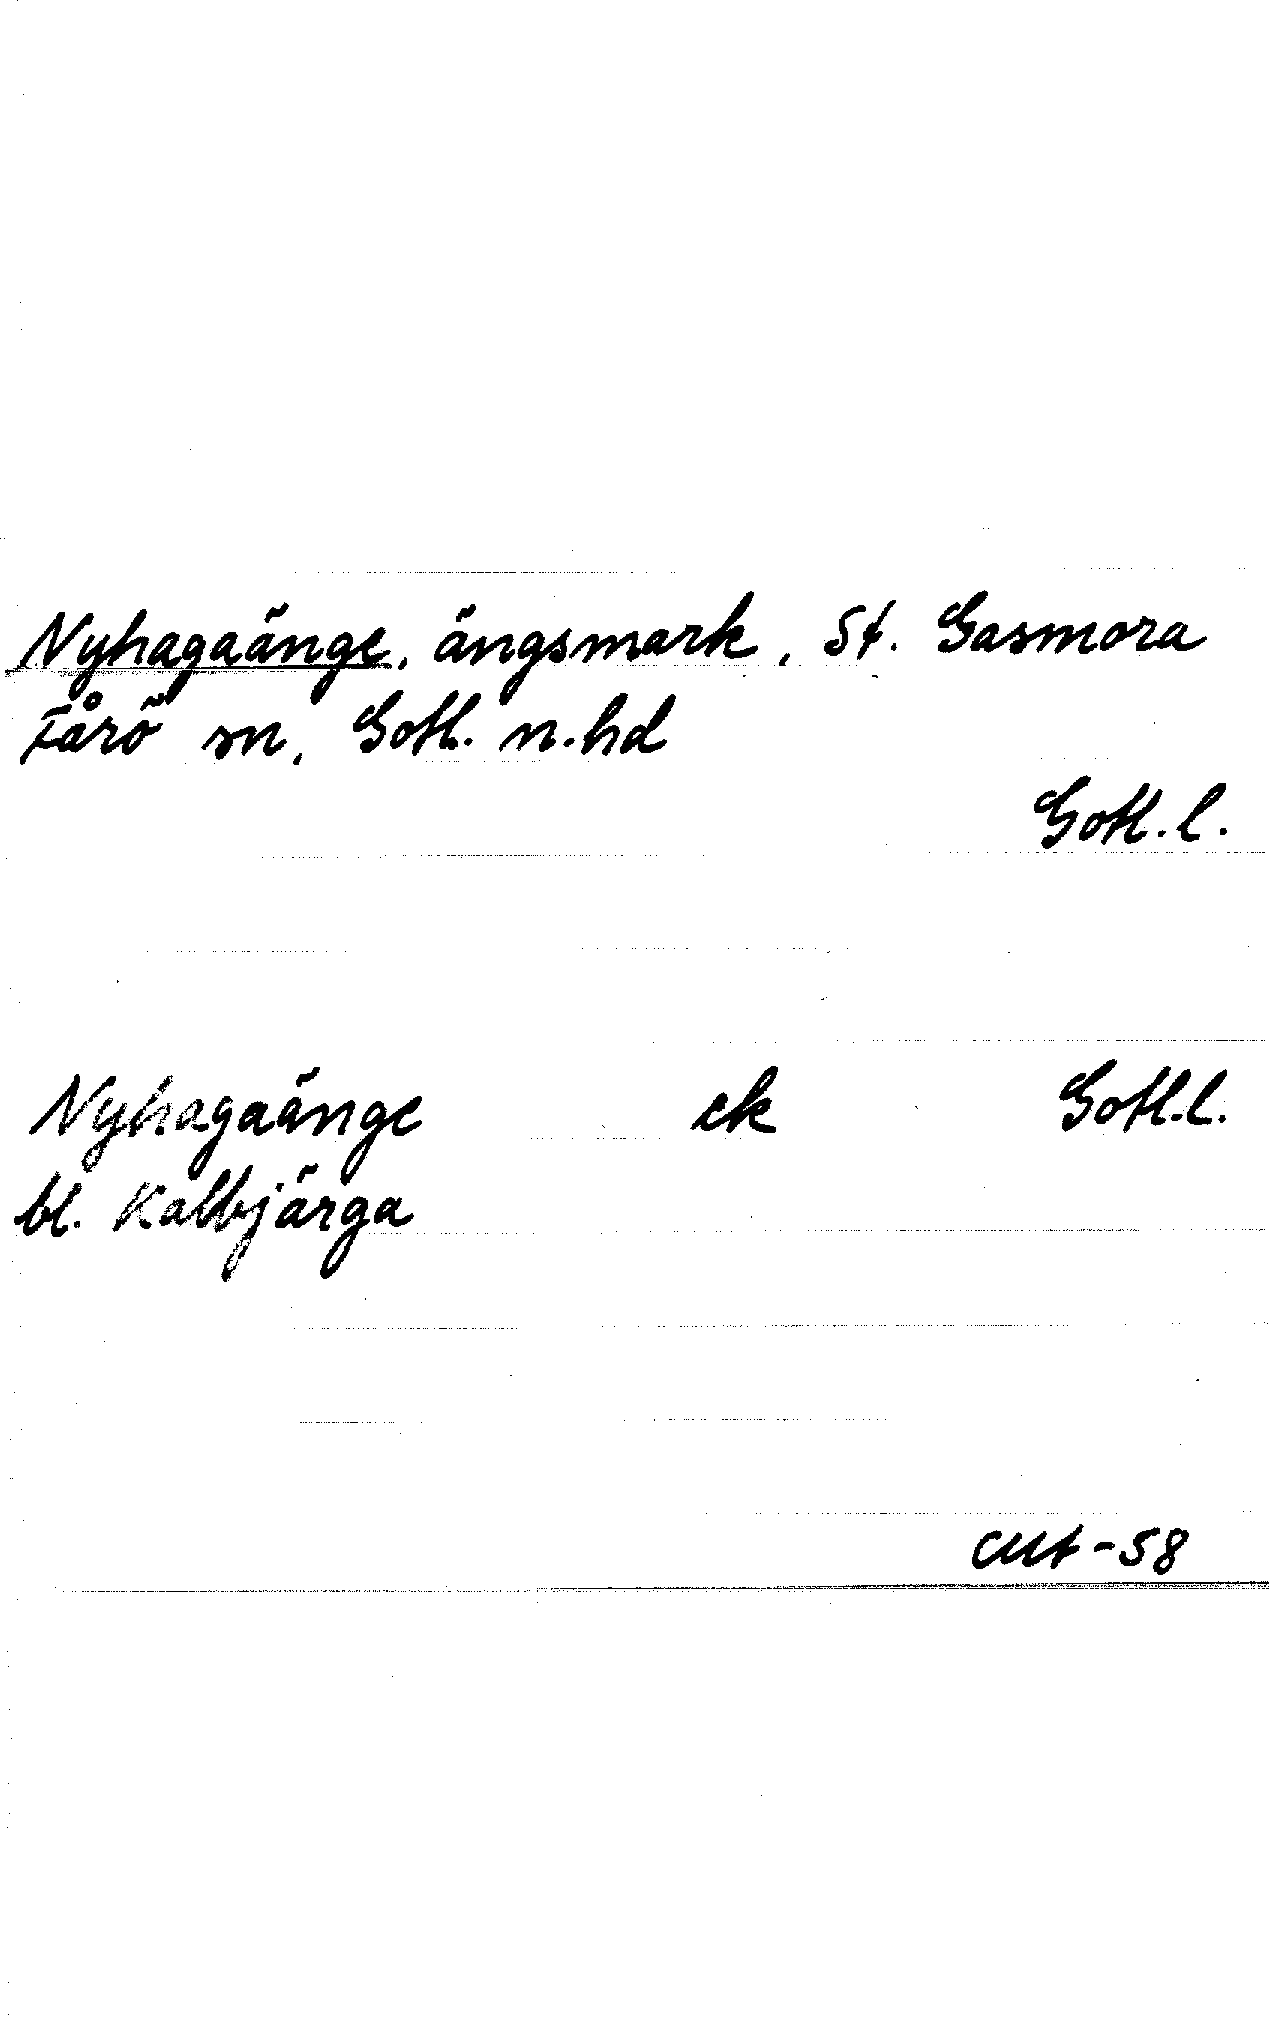 Nyhagaänge, ängsmark, St. Gasmora
Fårö sn, Gotl. n. hd
Gotl. l.
Nyhagaänge ek Gotl. l.
bl. Kalbjärga
CMt-58